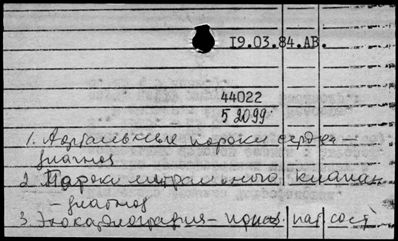 I9.03.84.АВ.
44022
5 2099
1. Аортальные пороки сердца —
диагноз
2 Пороки митрального клапан
— диагноз
3. Эхокардиография — призн. пат сост